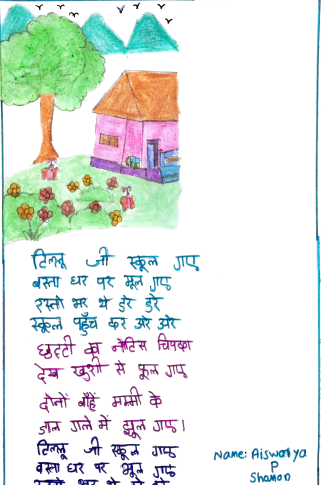 टिल्लू जी स्कूल गए
बस्ता घर पर भूल गए
रस्ते भर थे डरे डरे
स्कूल पहुँच कर अरे अरे
छुट्टी का नोटिस चिपका
देख खुशी से फूल गए
दोनों बाँहें मम्मी के
डाल गले में झूल गए।
टिल्लू जी स्कूल गए
बस्ता घर पर भूल गए
रस्ते भर थे डरे डरे
Name: Aiswarya
P
Shamon